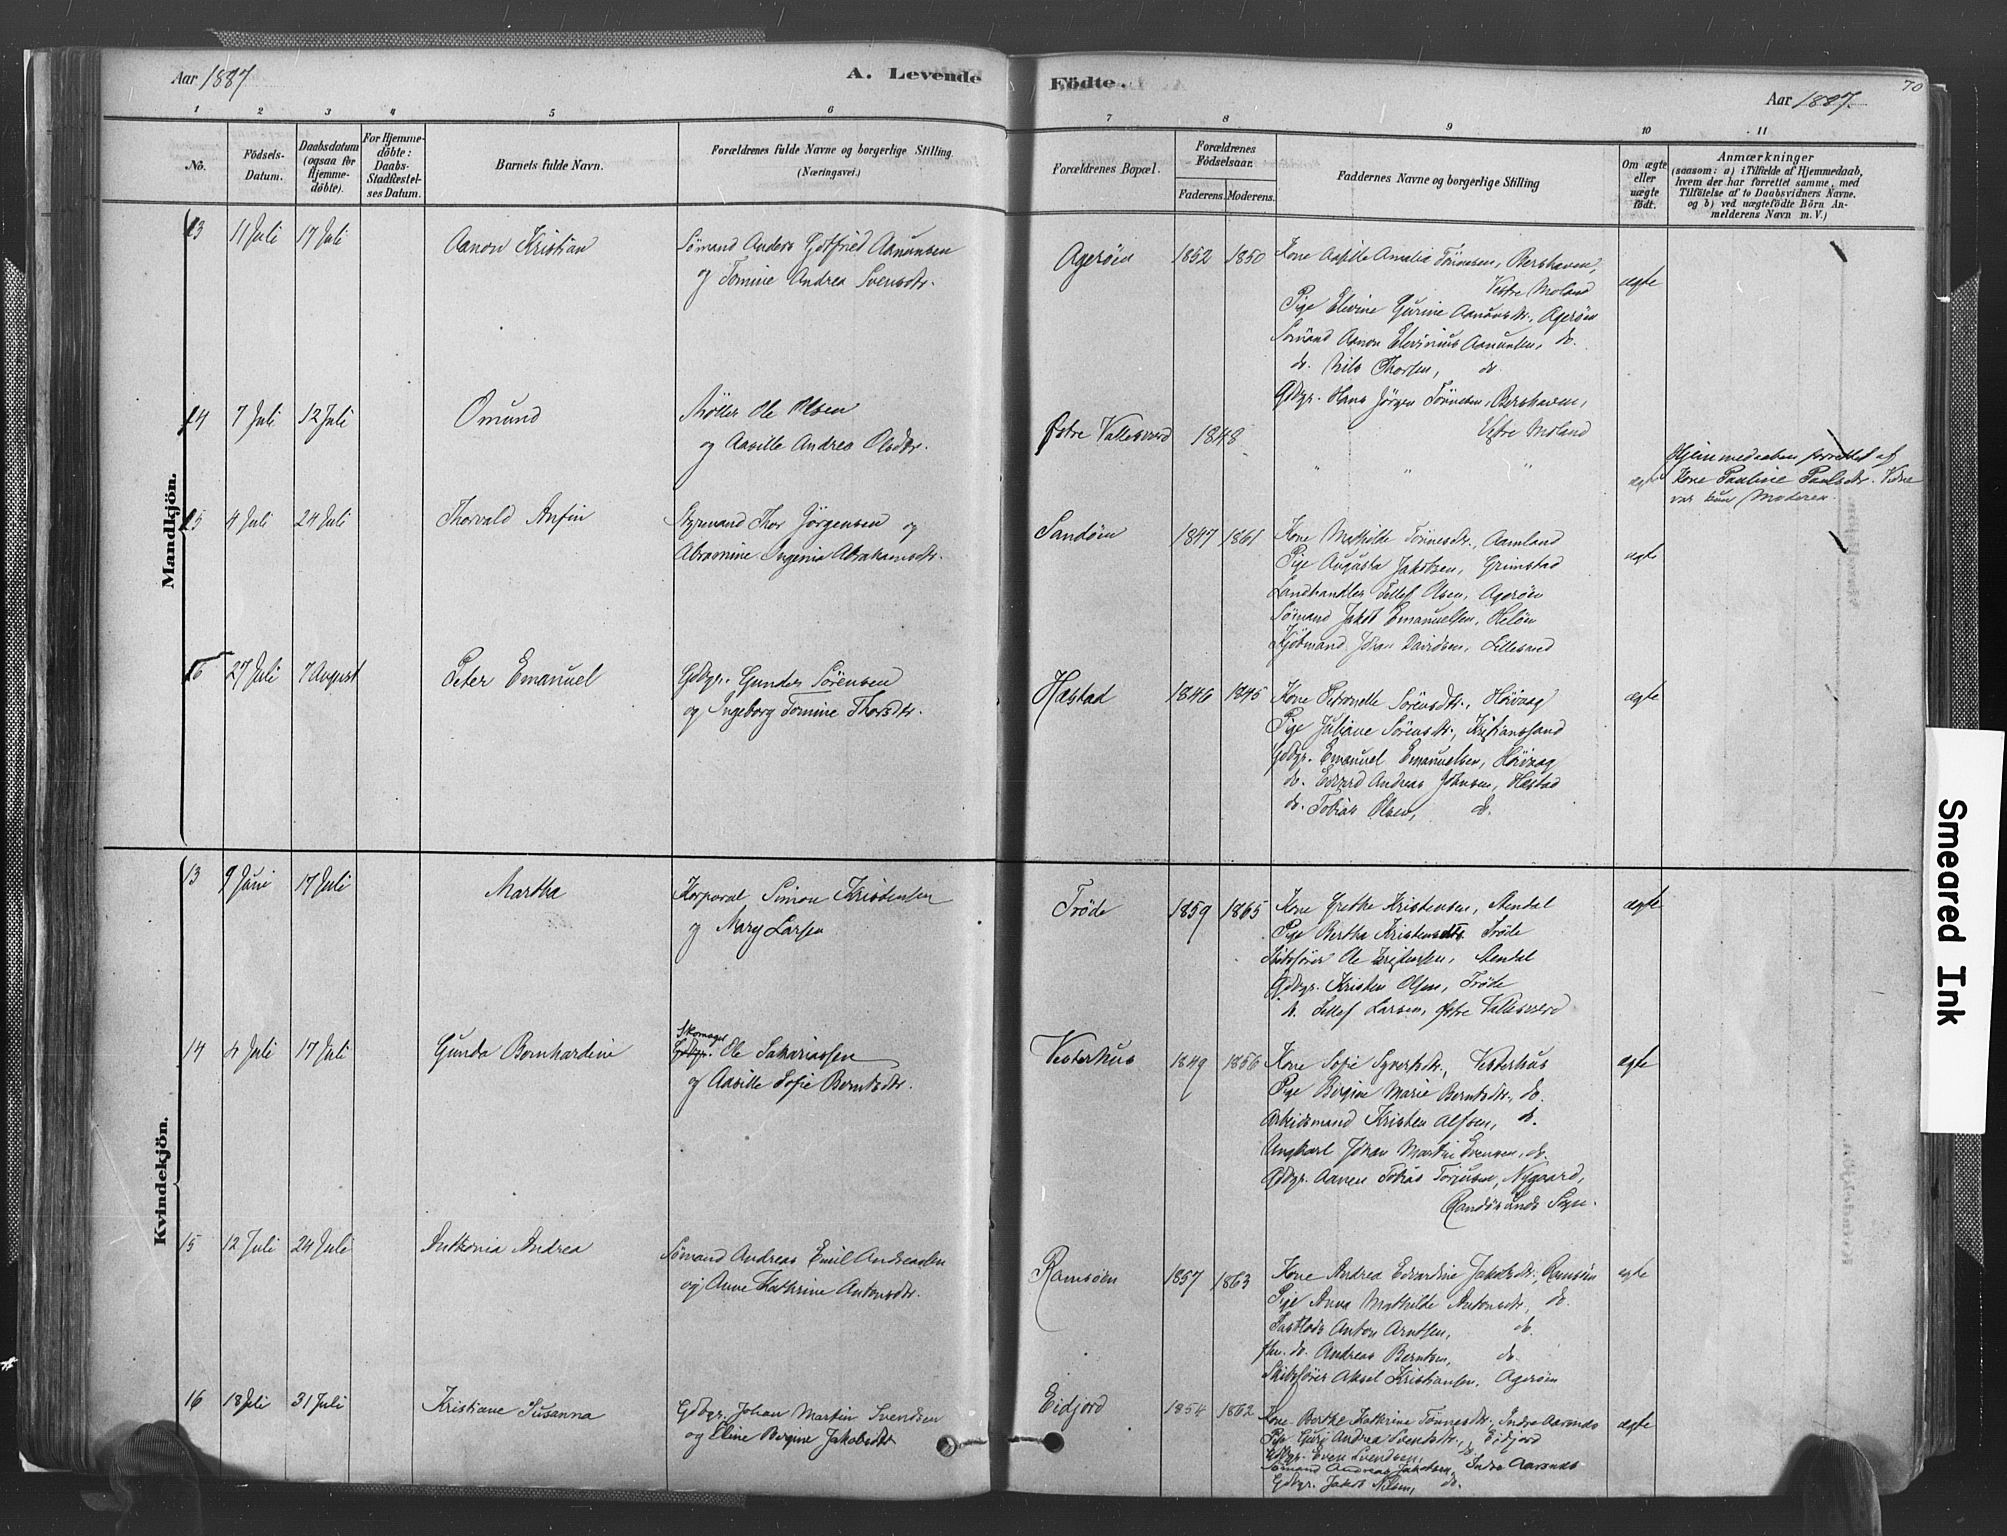 Aar 1887.
A. Levende Födte.
Aar 1887.
70
1 2 3 4 5 6 7 8 9 10 11
No.
Födsels-Datum.
Daabsdatum (ogsaa for Hjemme-döbte).
For Hjemme-döbte: Daabs-Stadfæstel-ses Datum.
Barnets fulde Navn.
Forældrenes fulde Navne og borgerlige Stilling.
(Næringsvei.)
Forældrenes Bopæl.
Forældrenes Födselsaar.
Faderens. Moderens.
Faddernes Navne og borgerlige Stilling
Om ægte eller uægte födt.
Anmærkninger
(saasom: a) i Tilfælde af Hjemmedaab,
hvem der har forrettet samme, med
Tilföielse af to Daabsvidners Navne.
og b) ved uægtefödte Börn An-
melderens Navn m. V.)
Mandkjön.
13 11 Juli 17 Juli Aanon Kristian Sømand Anders Gotfried Aanunsen
og Tomine Andrea Svensdtr.
Agerøen 1852 1850 Kone Aasille Amalia Tønnesen, Bershaven,
Vestre Moland
ægte
Pige Elevine Gurine Aanunsdtr., Agerøen
Sømand Aanon Elevinius Aanunsen, do.
do. Nils Thorsen, do.
Gdbgr. Hans Jørgen Tønnesen, Bershaven,
Vestre Moland
14 7 Juli 12 Juli Omund Møller Ole Olsen
og Aasille Andrea Olsdtr.
Østre Vallesverd 1848
" " "
ægte
Hjemmedaaben forrettet af
Kone Pauline Paulsdtr. Vidne
var kun Moderen.
15 4 Juli 24 Juli Thorvald Anfin Styrmand Thor Jörgensen og
Abramine Ingenia Abrahamsdtr.
Sandøen 1847 1861 Kone Mathilde Tönnesdtr., Aamland
Pige Augusta Jakobsen, Grimstad
ægte
Landhandler Tellef Olsen, Agerøen
Sømand Jakob Emanuelsen, Heløen
Kjøbmand Johan Davidsen, Lillesand
16 27 Juli 7 August Peter Emanuel Gdbgr. Gunder Sørensen
og Ingeborg Tomine Thorsdtr.
Hæstad 1846 1845 Kone Petronelle Sörensdtr., Høivaag
ægte
Pige Juliane Sörensdtr., Kristianssand
Gdbgr. Emanuel Emanuelsen, Høivaag
do. Edvard Andreas Johnsen, Hæstad
do. Tobias Olsen, do.
Kvindekjön.
13 9 Juni 17 Juli Martha Korporal Simon Kristensen
og Mary Larsen
Trøde 1859 1865 Kone Grethe Kristensen, Stendal
ægte
Pige Bertha Kristensdtr. Trøde
Skibsfører Ole Kristensen, Stendal
Gdbgr. Kristen Olsen, Trøde
do. Tellef Larsen, Østre Vallesverd
14 2 Juli 17 Juli Gunda Bernhardine Skomager
Gdbgr. Ole Sakariassen
og Aasille Sofie Berntsdtr.
Vesterhus 1849 1856 Kone Sofie Syvertsdtr., Vesterhus
ægte
Pige Birgine Marie Berntsdtr., do.
Arbeidsmand Kristen Alfsen, do.
Ungkarl Johan Martin Evensen, do.
Gdbgr. Aanen Tobias Torjusen, Nygaard,
Randøsunds Sogn.
15 12 Juli 24 Juli Anthonia Andrea Sømand Andreas Emil Andreassen
og Anne Kathrine Antonsdtr.
Ramsøen 1857 1863 Kone Andrea Edvardine Jakobsdtr., Ramsøen
ægte
Pige Anna Mathilde Antonsdtr., do.
Fastlods Anton Arntsen, do.
fhv. do. Andreas Berntsen, do.
Skibsfører Aksel Kristiansen, Agerøen
16 18 Juli 31 Juli Kristiane Susanna Gdbgr. Johan Martin Svendsen
og Eline Birgine Jakobsdtr.
Eidjord 1854 1862 Kone Berthe Kathrine Tönnesdtr., Indre Aarsnæs
ægte
Pige Guri Andrea Svendsdtr., Eidjord
Gdbgr. Even Svendsen, do.
Sömand Andreas Jakobsen, Indre Aarsnæs
Gdbgr. Jakob Nilsen, do.
Smeared Ink